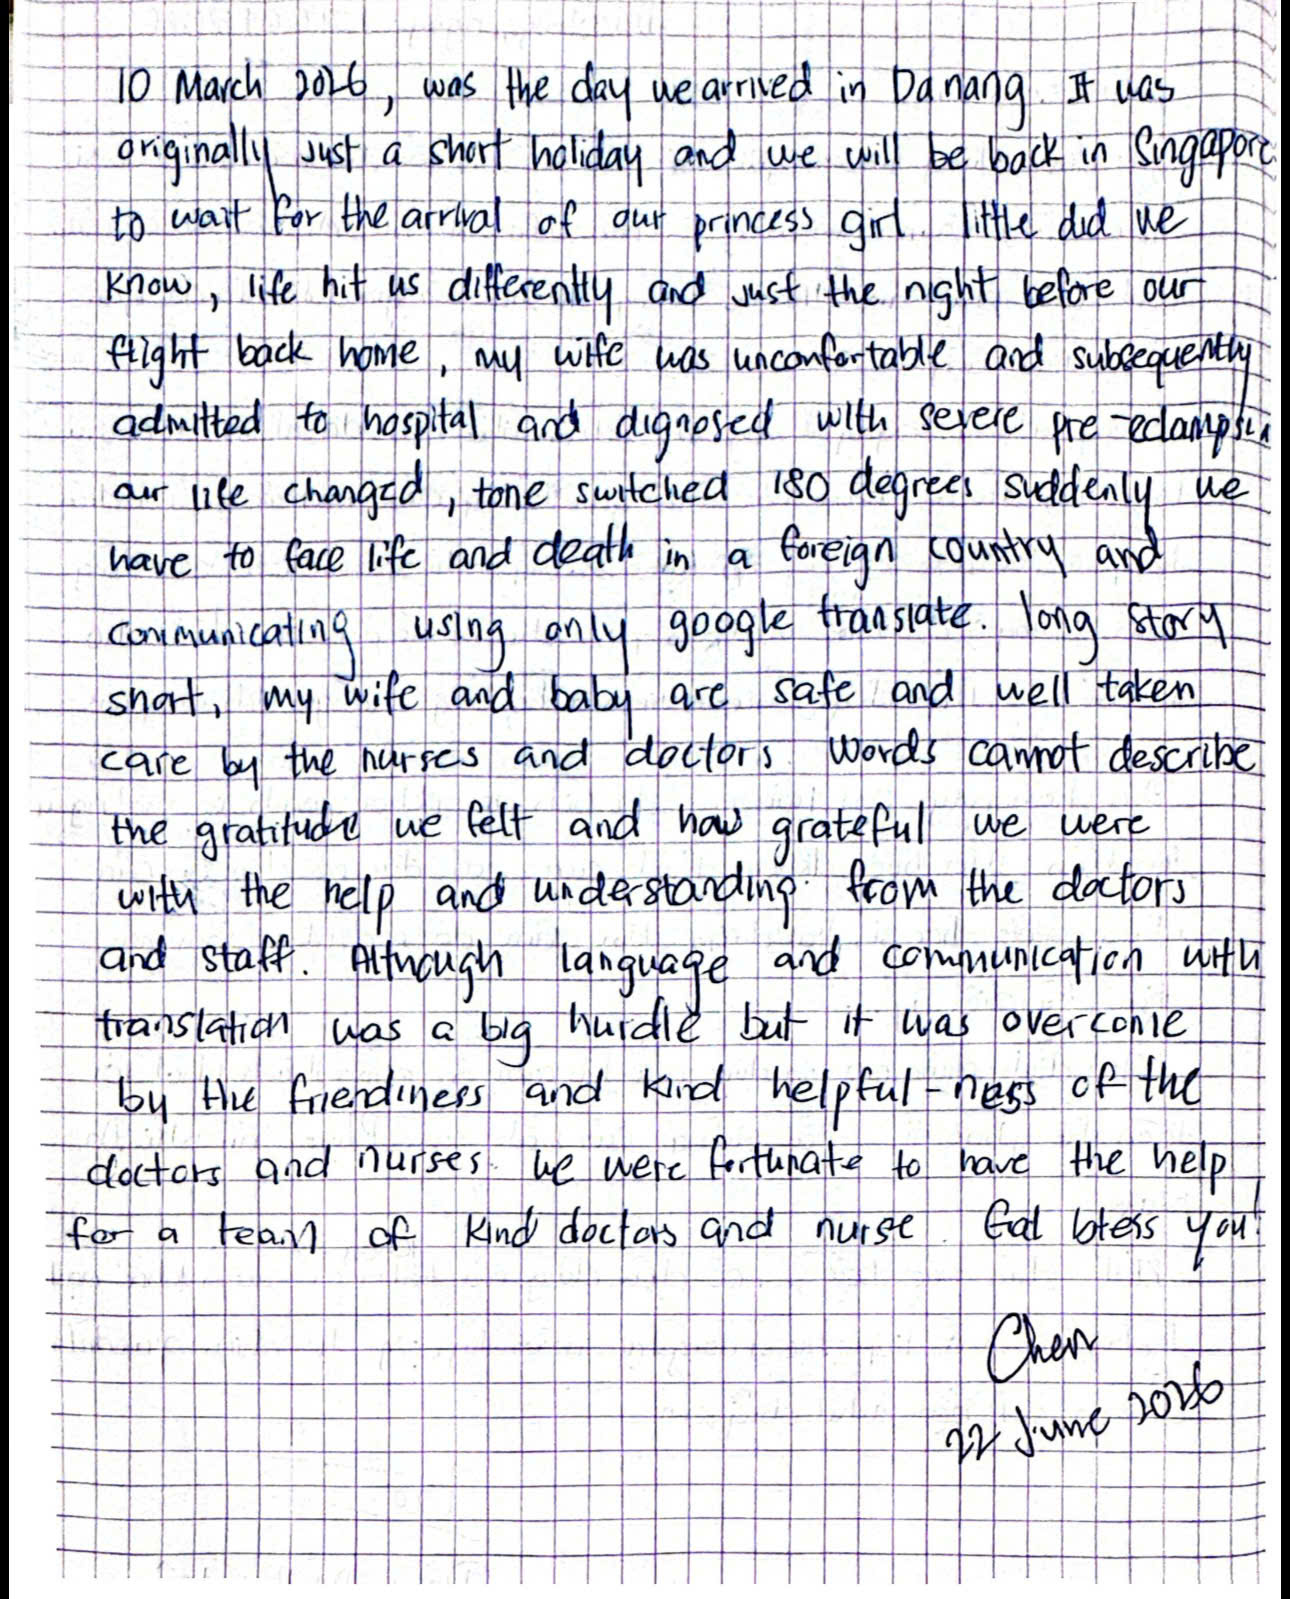 10 March 2026, was the day we arrived in Danang. It was
originally just a short holiday and we will be back in Singapore
to wait for the arrival of our princess girl. little did we
know, life hit us differently and just the night before our
flight back home, my wife was uncomfortable and subsequently
admitted to hospital and dignosed with severe pre-eclampsia
our life changed, tone switched 180 degrees suddenly we
have to face life and death in a foreign country and
communicating using only google translate. long story
short, my wife and baby are safe and well taken
care by the nurses and doctors. Words cannot describe
the gratitude we felt and how grateful we were
with the help and understanding from the doctors
and staff. Although language and communication with
translation was a big hurdle but it was overcome
by the friendiness and kind helpful-ness of the
doctors and nurses. we were fortunate to have the help
for a team of kind doctors and nurse. God bless you!
Chen
22 June 2026